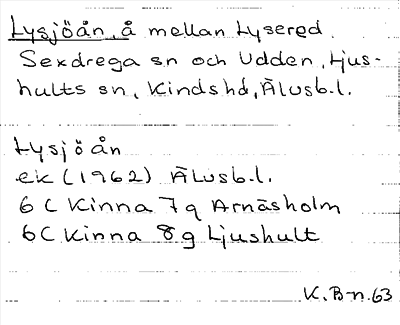 Lysjöån, å mellan Lysered,
Sexdrega sn och Udden, Ljus-
hults sn, Kindshd, Älvsb.l.
Lysjöån
ek (1962) Älvsb.l.
6 C Kinna 7g Arnäsholm
6C Kinna 8g Ljushult
K.B-n.63